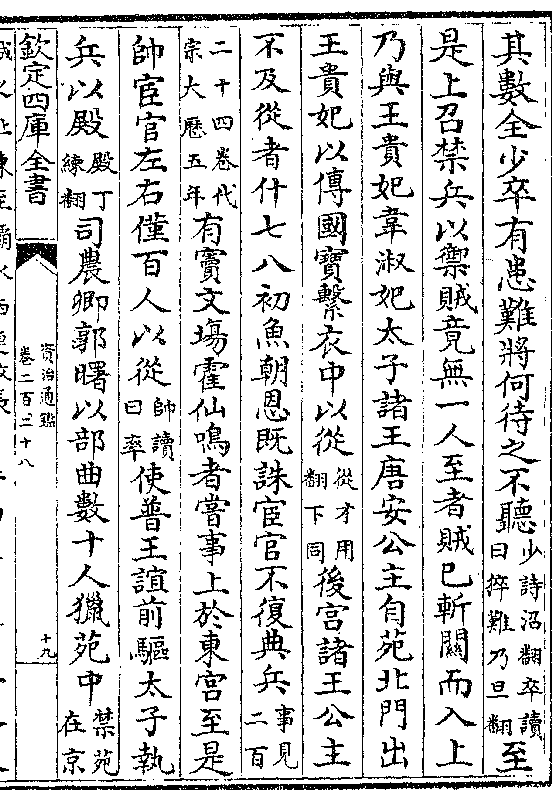 其數全少卒有患難將何待之不聽少詩沼翻卒讀曰猝難乃旦翻至
是上召禁兵以禦賊竟無一人至者賊已斬關而入上
乃與王貴妃韋淑妃太子諸王唐安公主自苑北門出
王貴妃以傳國寶繫衣中以從從才用翻下同後宮諸王公主
不及從者什七八初魚朝恩既誅宦官不復典兵事見二百
二十四卷代宗大歷五年有竇文塲霍仙鳴者嘗事上於東宮至是
帥宦官左右僅百人以從帥讀曰率使普王誼前驅太子執
兵以殿殿丁練翻司農卿郭曙以部曲數十人獵苑中禁苑在京
欽定四庫全書
資治通鑑
卷二百二十八
十九